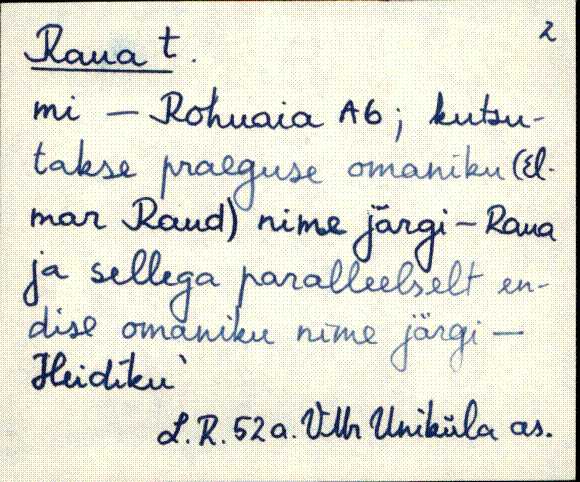 Raua t. 2
mi — Rohuaia A6; kutsu-
takse praeguse omaniku (El-
mar Raud) nime järgi — Raua
ja sellega paralleelselt en-
dise omaniku nime järgi —
Heidiku`
L.R. 52 a. VMr Uniküla as.